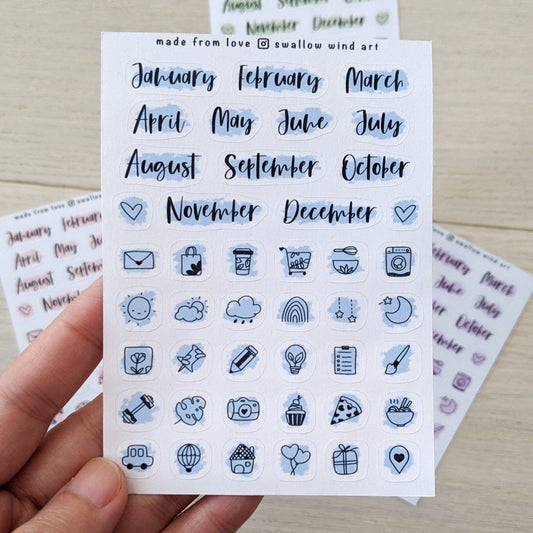 August September October
November December
made from love swallow wind art
January February March
April May June July
August September October
November December
made from love
January February
April May
August September
November
swallow wind art
February March
June July
October